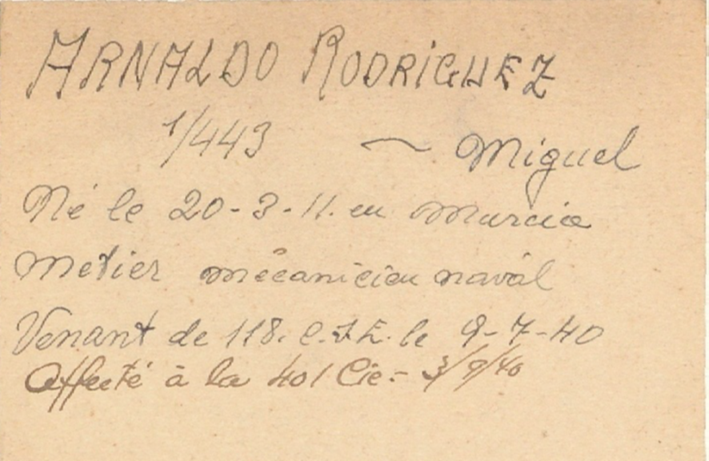 ARNALDO RODRIGUEZ
1/443 — Miguel
Né le 20-3-11. en Murcia
Metier mécanicien naval
Venant de 118. C.T.E. le 9-7-40
Affecté à la 401 Cie = 3/9/40